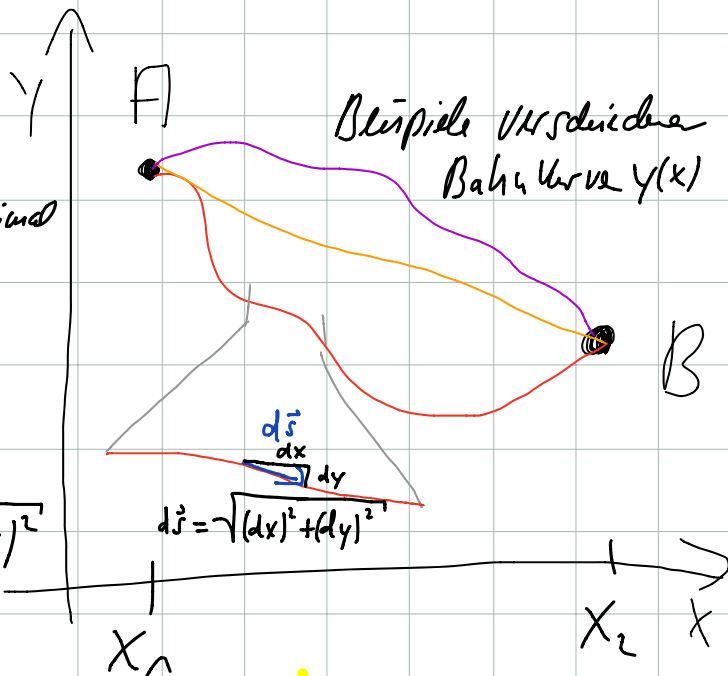 Y
A
Beispiele verschiedener
Bahnkurve y(x)
B
ds⃗
dx
dy
ds⃗ = √(dx)² + (dy)²
)²
X₂
X